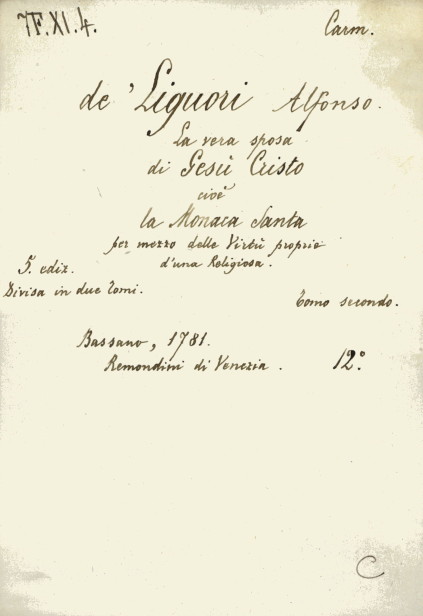 7F.XI.4.
Carm.
de' Liguori Alfonso.
La vera sposa
di Gesù Cristo
cioè
la Monaca Santa
per mezzo delle Virtù proprie
d'una Religiosa.
5. ediz.
Divisa in due Tomi.
Tomo secondo.
Bassano, 1781.
Remondini di Venezia.
12°.
C